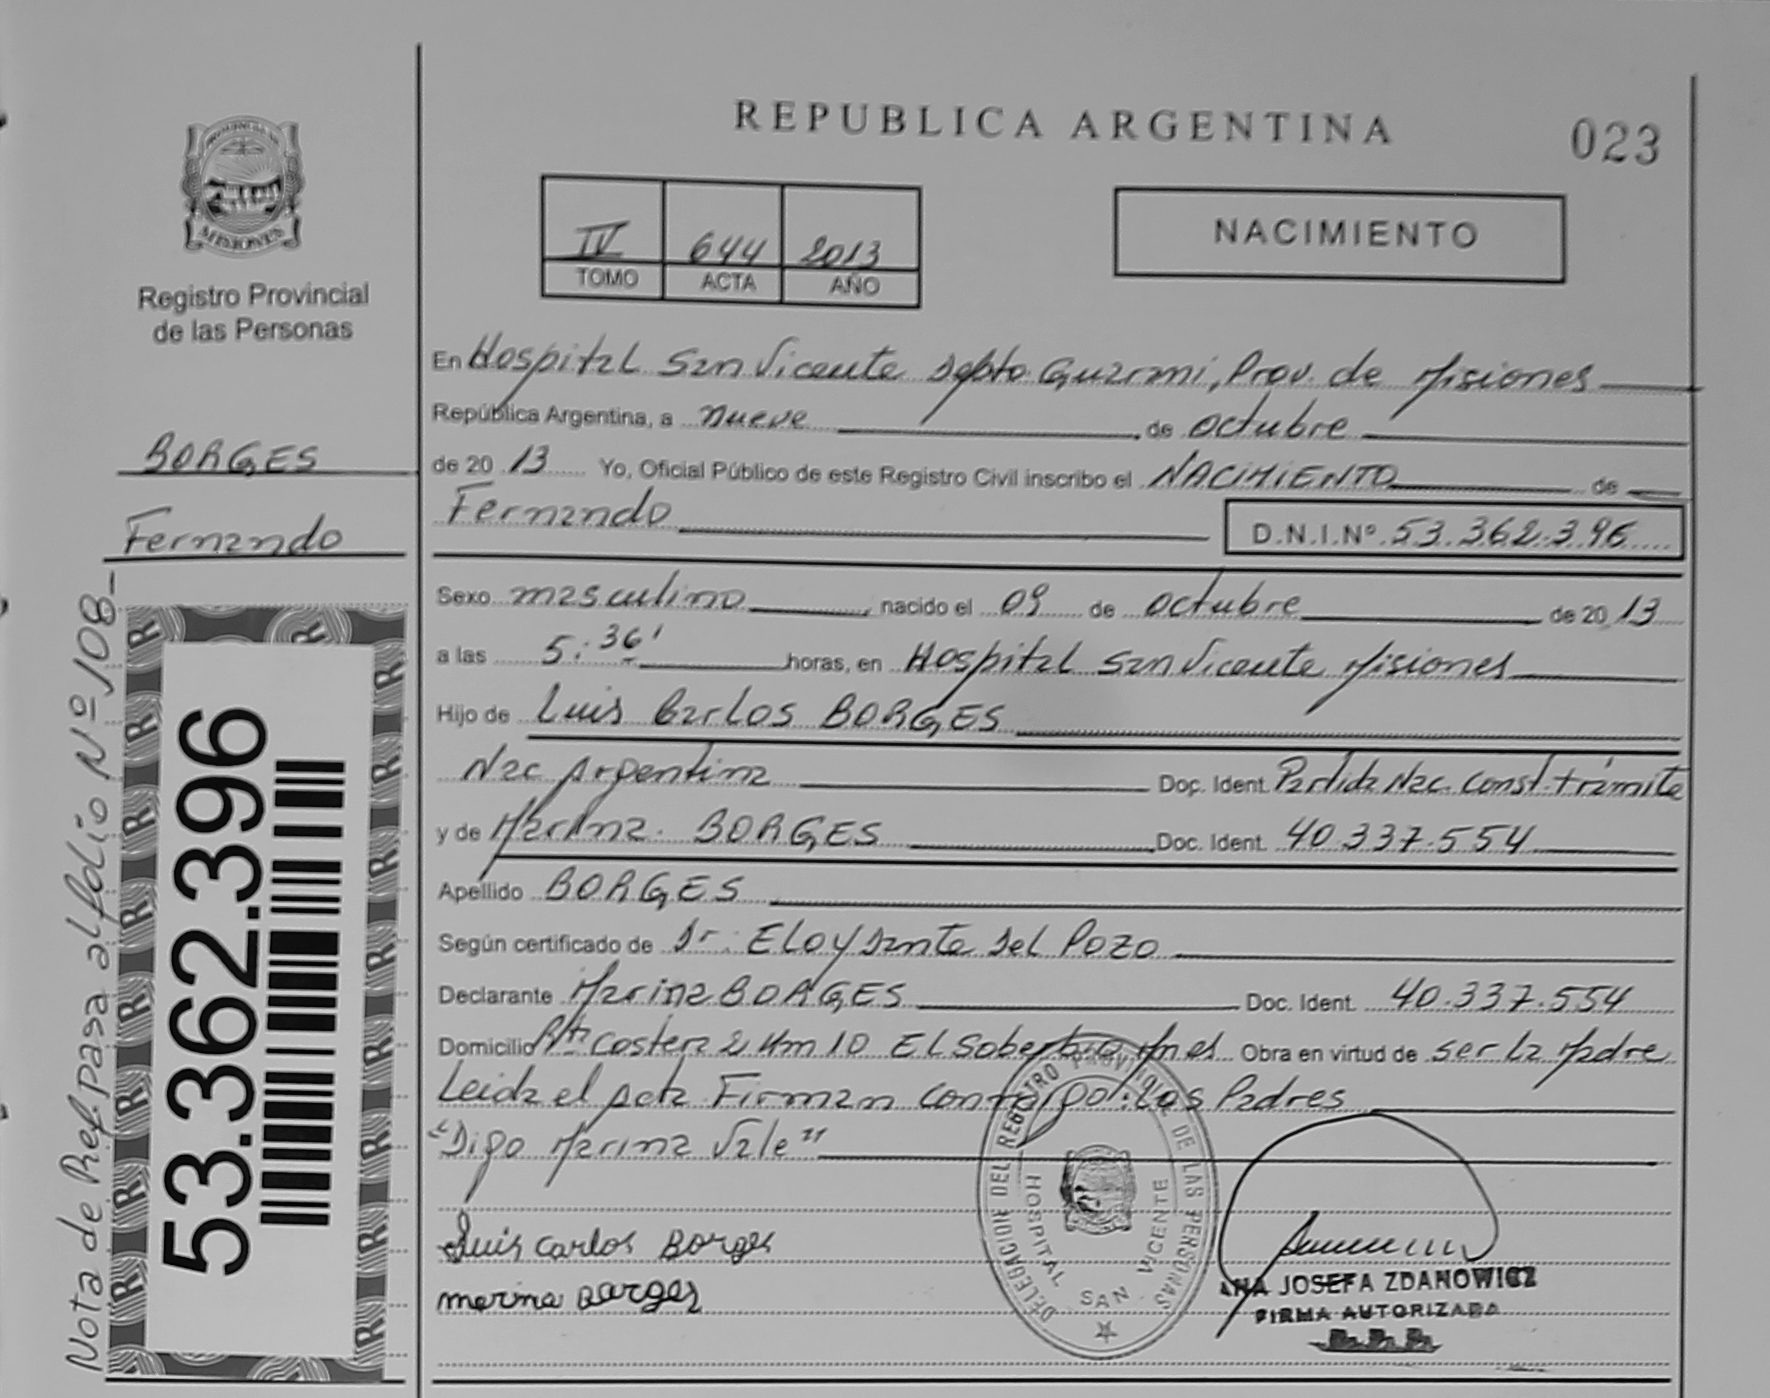 REPUBLICA ARGENTINA
023
PROVINCIA DE MISIONES
Registro Provincial
de las Personas
IV 644 2013
TOMO ACTA AÑO
NACIMIENTO
BORGES
Fernando
Nota de Ref pasa al folio Nº 108-
53.362.396
En Hospital San Vicente Depto Guarani, Prov. de Misiones
República Argentina, a nueve de octubre
de 2013 Yo, Oficial Público de este Registro Civil inscribo el NACIMIENTO de
Fernando D.N.I.Nº 53.362.396
Sexo masculino nacido el 09 de octubre de 2013
a las 5:36' horas, en Hospital San Vicente Misiones
Hijo de Luis Carlos BORGES
Nac Argentina Doc. Ident. Partida Nac. Const. trámite
y de Marina BORGES Doc. Ident. 40.337.554
Apellido BORGES
Según certificado de Dr. Eloy Dante Del Pozo
Declarante Marina BORGES Doc. Ident. 40.337.554
Domicilio Rta Costera 2 Km 10 El Soberbio Mnes. Obra en virtud de ser la Madre
Leida el Acta Firman conf. por: Los Padres
"Digo Marina Vale"
DELEGACION DEL REGISTRO PROVINCIAL DE LAS PERSONAS
HOSPITAL SAN VICENTE
Luis Carlos Borges
marina Borges
ANA JOSEFA ZDANOWICZ
FIRMA AUTORIZADA